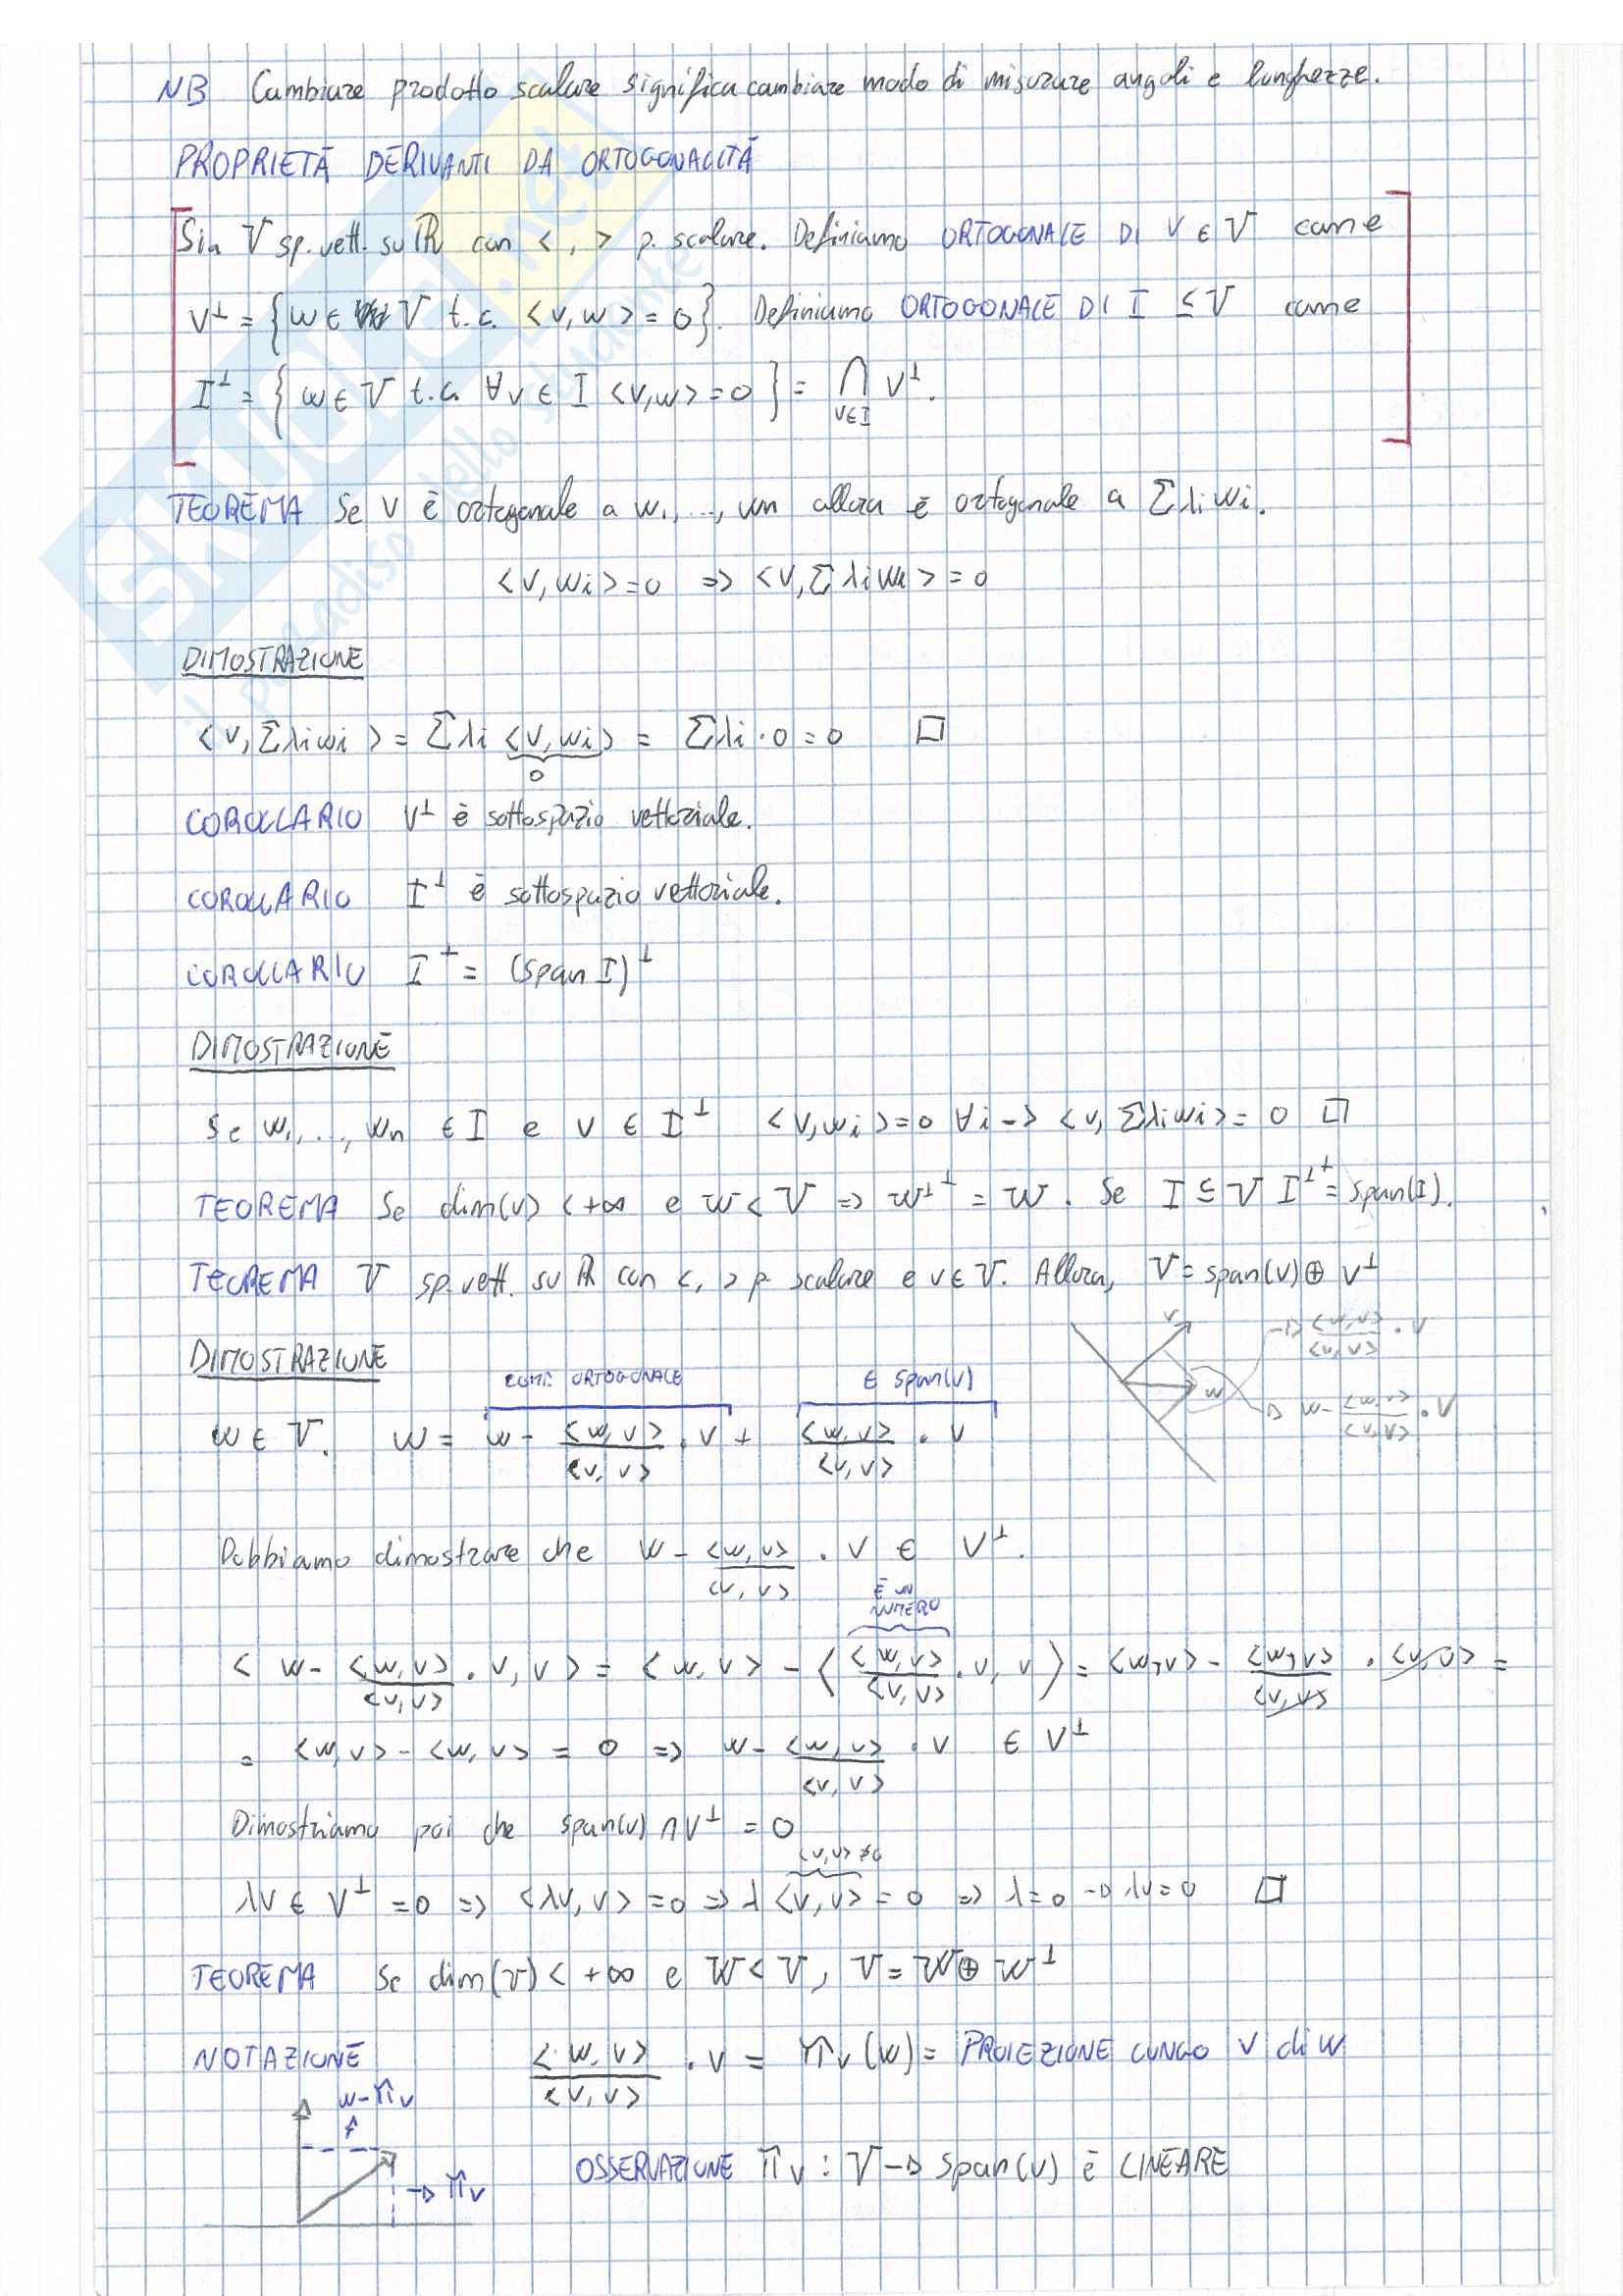 NB Cambiare prodotto scalare significa cambiare modo di misurare angoli e lunghezze.
PROPRIETÀ DERIVANTI DA ORTOGONALITÀ
Sia V sp. vett. su ℝ con < , > p. scalare. Definiamo ORTOGONALE DI v ∈ V come
v⊥ = {w ∈ V t.c. <v,w> = 0}. Definiamo ORTOGONALE DI I ⊆ V come
I⊥ = {w ∈ V t.c. ∀v ∈ I <v,w> = 0} = ⋂_{v∈I} v⊥.
TEOREMA Se v è ortogonale a w1, ..., wn allora è ortogonale a Σλiwi.
<v,wi> = 0 => <v,Σλiwi> = 0
DIMOSTRAZIONE
<v,Σλiwi> = Σλi <v,wi> = Σλi · 0 = 0 □
0
COROLLARIO v⊥ è sottospazio vettoriale.
COROLLARIO I⊥ è sottospazio vettoriale.
COROLLARIO I⊥ = (span I)⊥
DIMOSTRAZIONE
Se w1, ..., wn ∈ I e v ∈ I⊥ <v,wi> = 0 ∀i -> <v,Σλiwi> = 0 □
TEOREMA Se dim(v) < +∞ e W < V => W⊥⊥ = W. Se I ⊆ V I⊥⊥ = span(I).
TEOREMA V sp. vett. su ℝ con < , > p. scalare e v ∈ V. Allora, V = span(v) ⊕ v⊥
DIMOSTRAZIONE
COMP. ORTOGONALE ∈ span(v)
w ∈ V. w = w - <w,v>/<v,v> · v + <w,v>/<v,v> · v
v -▷ <w,v>/<v,v> · v
w -▷ w - <w,v>/<v,v> · v
Dobbiamo dimostrare che w - <w,v>/<v,v> · v ∈ v⊥.
È UN NUMERO
< w - <w,v>/<v,v> · v, v > = <w,v> - < <w,v>/<v,v> · v, v > = <w,v> - <w,v>/<v,v> · <v,v> =
= <w,v> - <w,v> = 0 => w - <w,v>/<v,v> · v ∈ v⊥
Dimostriamo poi che span(v) ∩ v⊥ = 0
<v,v> ≠ 0
λv ∈ v⊥ = 0 => <λv,v> = 0 => λ <v,v> = 0 => λ = 0 -▷ λv = 0 □
TEOREMA Se dim(V) < +∞ e W < V, V = W ⊕ W⊥
NOTAZIONE <w,v>/<v,v> · v = πv(w) = PROIEZIONE LUNGO v di w
w - πv
-▷ πv
OSSERVAZIONE πv : V -▷ span(v) è LINEARE
SKUOLA.net
il paradiso dello studente